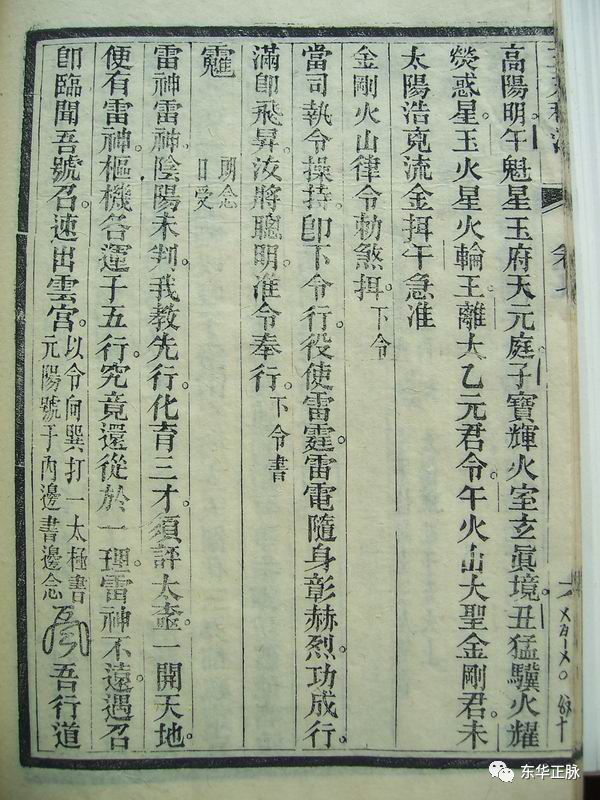 高陽明。午魁星玉府天元庭。子寶輝火室玄眞境。丑猛驥火耀
熒惑星。玉火星火輪王離大乙元君令。午火山大聖金剛君。未
太陽浩竟流金挕午急准
金剛火山律令勅煞挕 下令
當司執令操持。卽下令行。役使雷霆雷電隨身彰赫烈。功成行。
滿卽飛昇。汝將聰明。准令奉行。下令書
明念
口受
雷神雷神。陰陽未判。我教先行。化育三才。須評太壺。一開天地。
便有雷神。樞機各運子五行。究竟還從於一理。雷神不遠。遇召
卽臨。聞吾號召。速出雲宮。以令向巽打一太極書
元陽號子內邊書邊念
吾行道
东华正脉